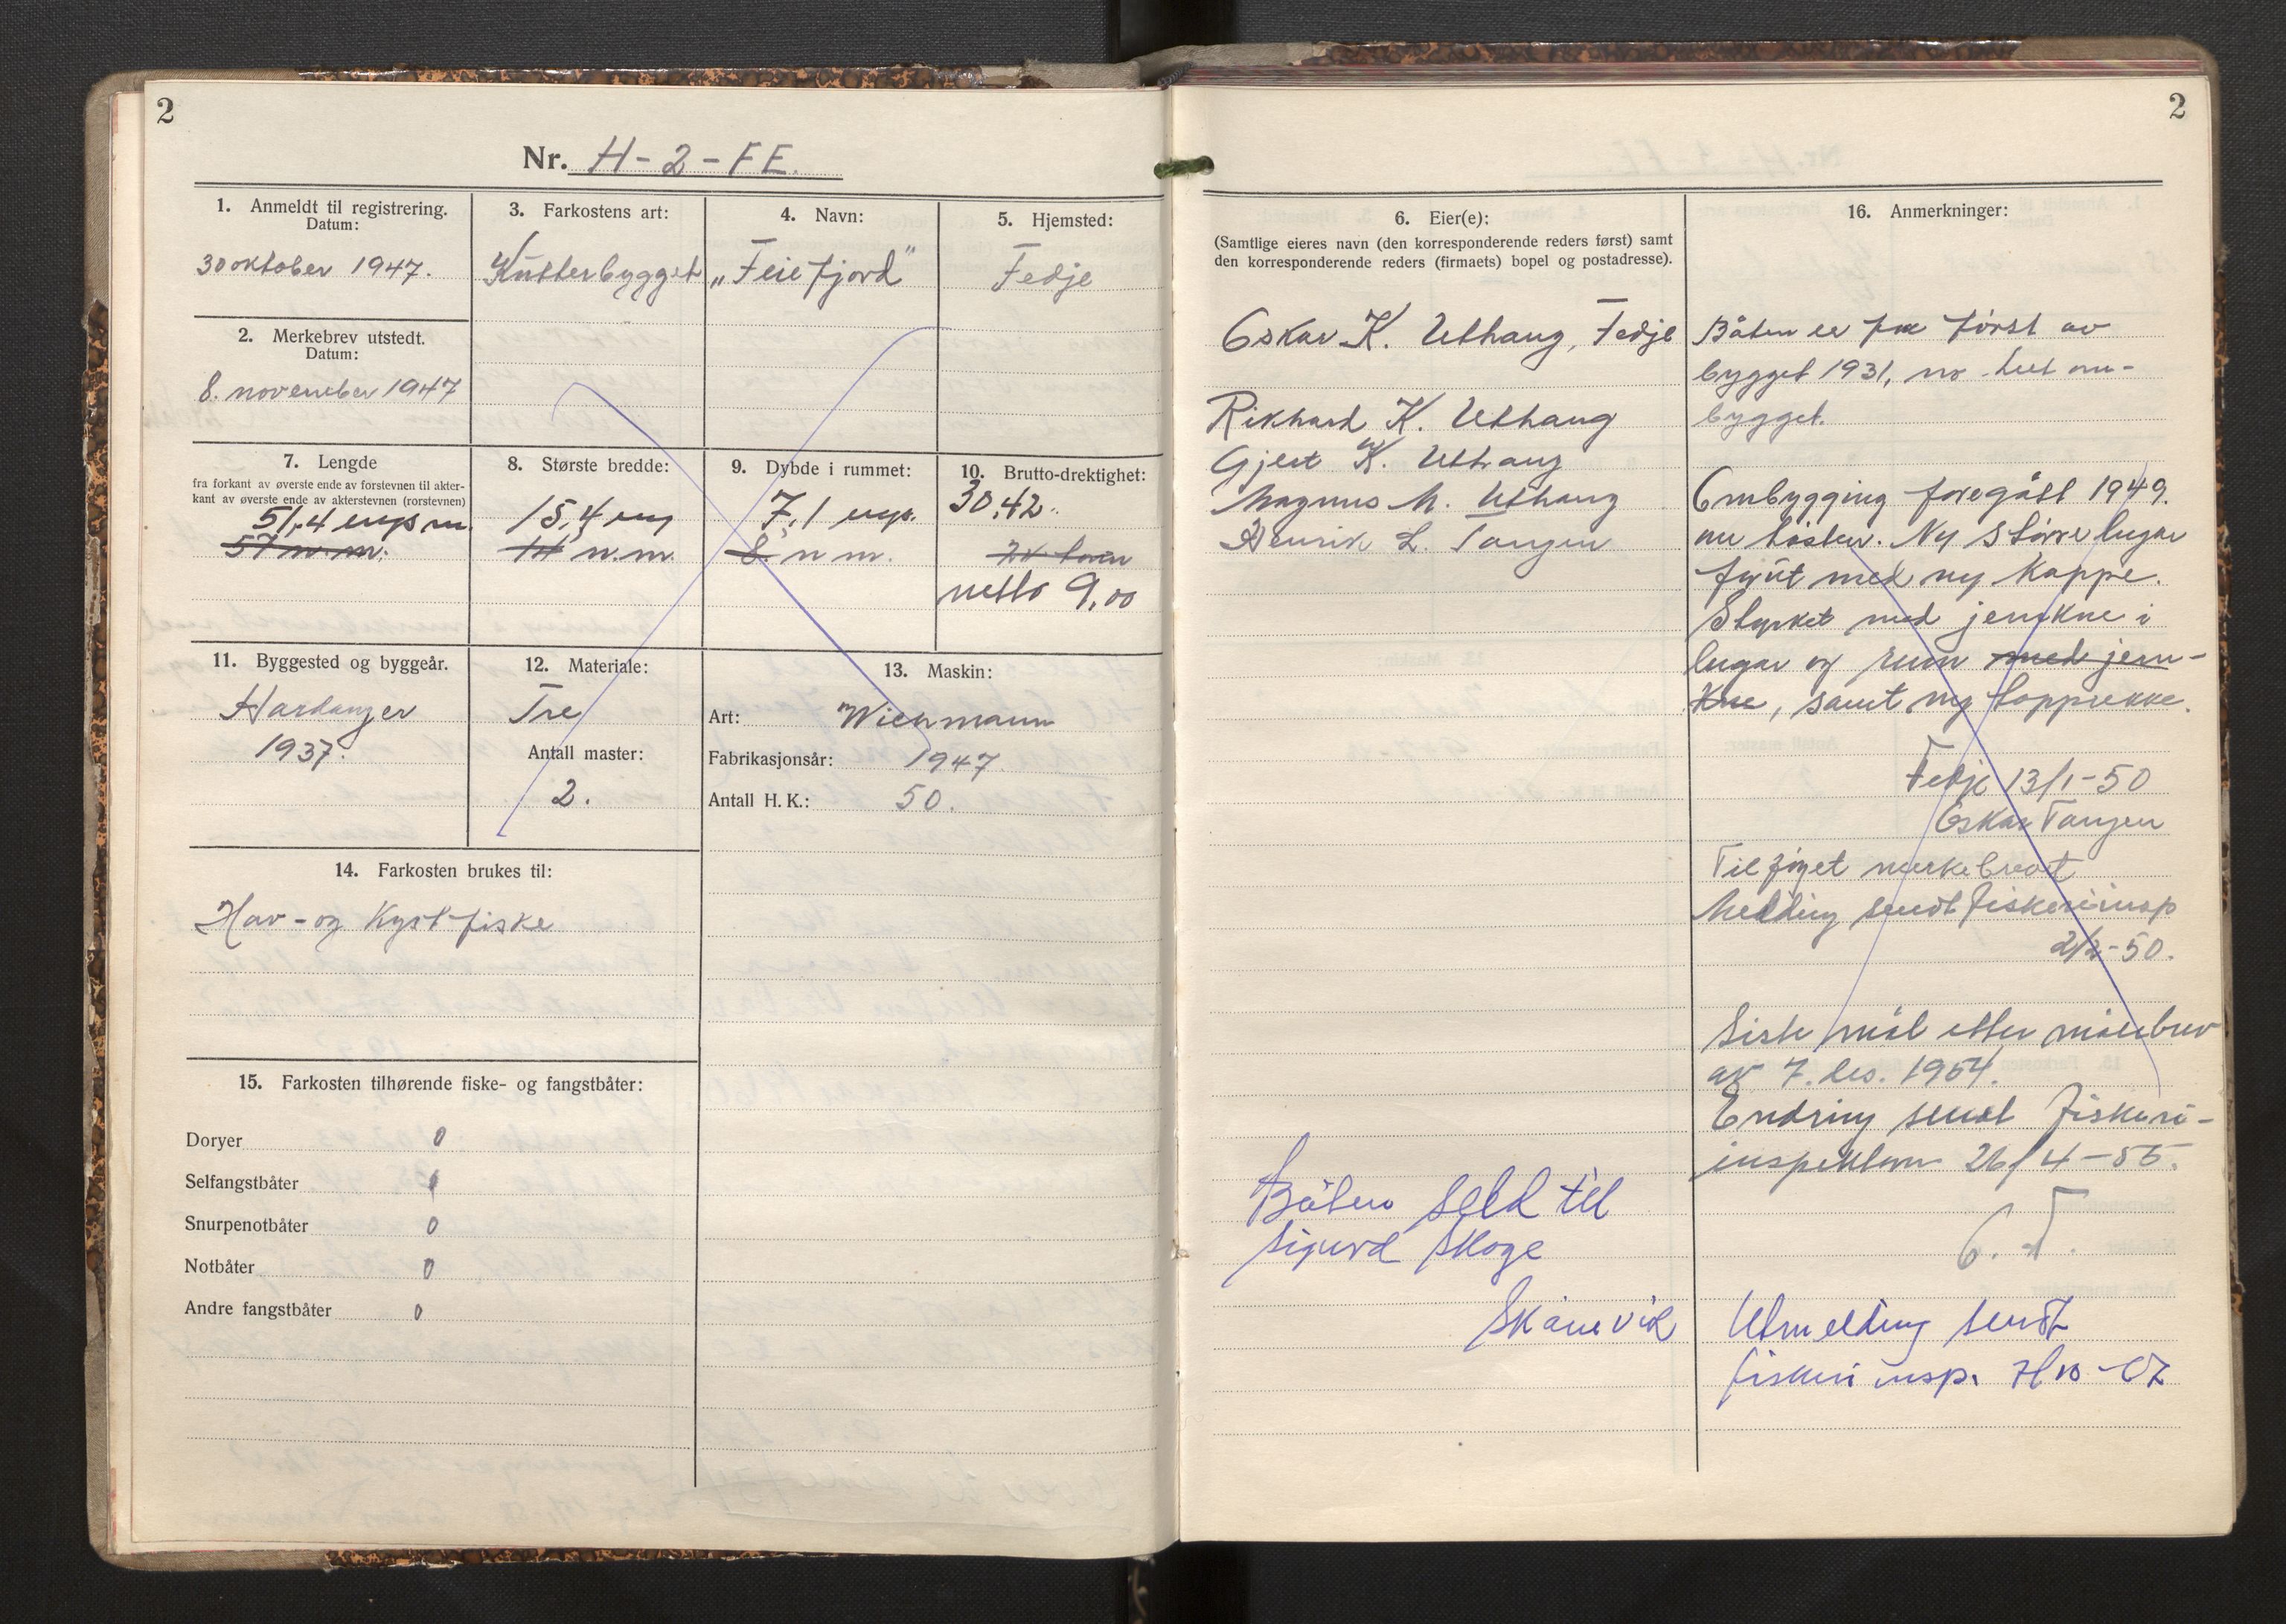 2
Nr. H-2-FE.
1. Anmeldt til registrering.
Datum:
30 oktober 1947.
2. Merkebrev utstedt.
Datum:
8. november 1947
3. Farkostens art:
Kutterbygget
4. Navn:
"Feiefjord"
5. Hjemsted:
Fedje
7. Lengde
fra forkant av øverste ende av forstevnen til akter-
kant av øverste ende av akterstevnen (rorstevnen)
51,4 eng m.
57 n.m.
8. Største bredde:
15,4 eng
14 n.m.
9. Dybde i rummet:
7,1 eng.
8. n m.
10. Brutto-drektighet:
30,42.
tonn
netto 9,00
11. Byggested og byggeår.
Hardanger
1937.
12. Materiale:
Tre
Antall master:
2.
13. Maskin:
Art: Wichmann
Fabrikasjonsår: 1947
Antall H. K.: 50.
14. Farkosten brukes til:
Hav- og Kystfiske
15. Farkosten tilhørende fiske- og fangstbåter:
Doryer 0
Selfangstbåter 0
Snurpenotbåter 0
Notbåter 0
Andre fangstbåter 0
2
6. Eier(e):
(Samtlige eieres navn (den korresponderende reders først) samt
den korresponderende reders (firmaets) bopel og postadresse).
Oskar K. Uthaug, Fedje
Rikhard K. Uthaug
Gjert K. Uthaug
Magnus M. Uthaug
Henrik L. Tangen
Båten seld til
Sigurd Skoge
Skånevik
16. Anmerkninger:
Båten er først av
bygget 1931, no heet om-
bygget.
Ombygging foregått 1949.
om høsten. Ny større lugar
forut med ny kappe.
Styrket med jernkne i
lugar og rum med jern-
kne, samt ny topprekke.
Fedje 13/1-50
Oskar Tangen
Tilføyet merkebrevet
Melding sendt fiskeriinsp
2/2-50.
Siste mål etter målebrev
av 7. des. 1954.
Endring sendt fiskeri-
inspektøren 26/4-55.
O. T.
Utmelding sendt
fiskeri insp.